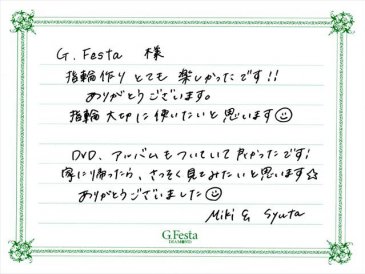 G. Festa 様
指輪作り とても 楽しかったです!!
ありがとうございます。
指輪 大切に 使いたいと 思います☺
DVD、アルバムもついていて 良かったです!
家に帰ったら、さっそく見てみたいと思います☆
ありがとうございました☺
Miki & Syuta
G.Festa
DIAMOND